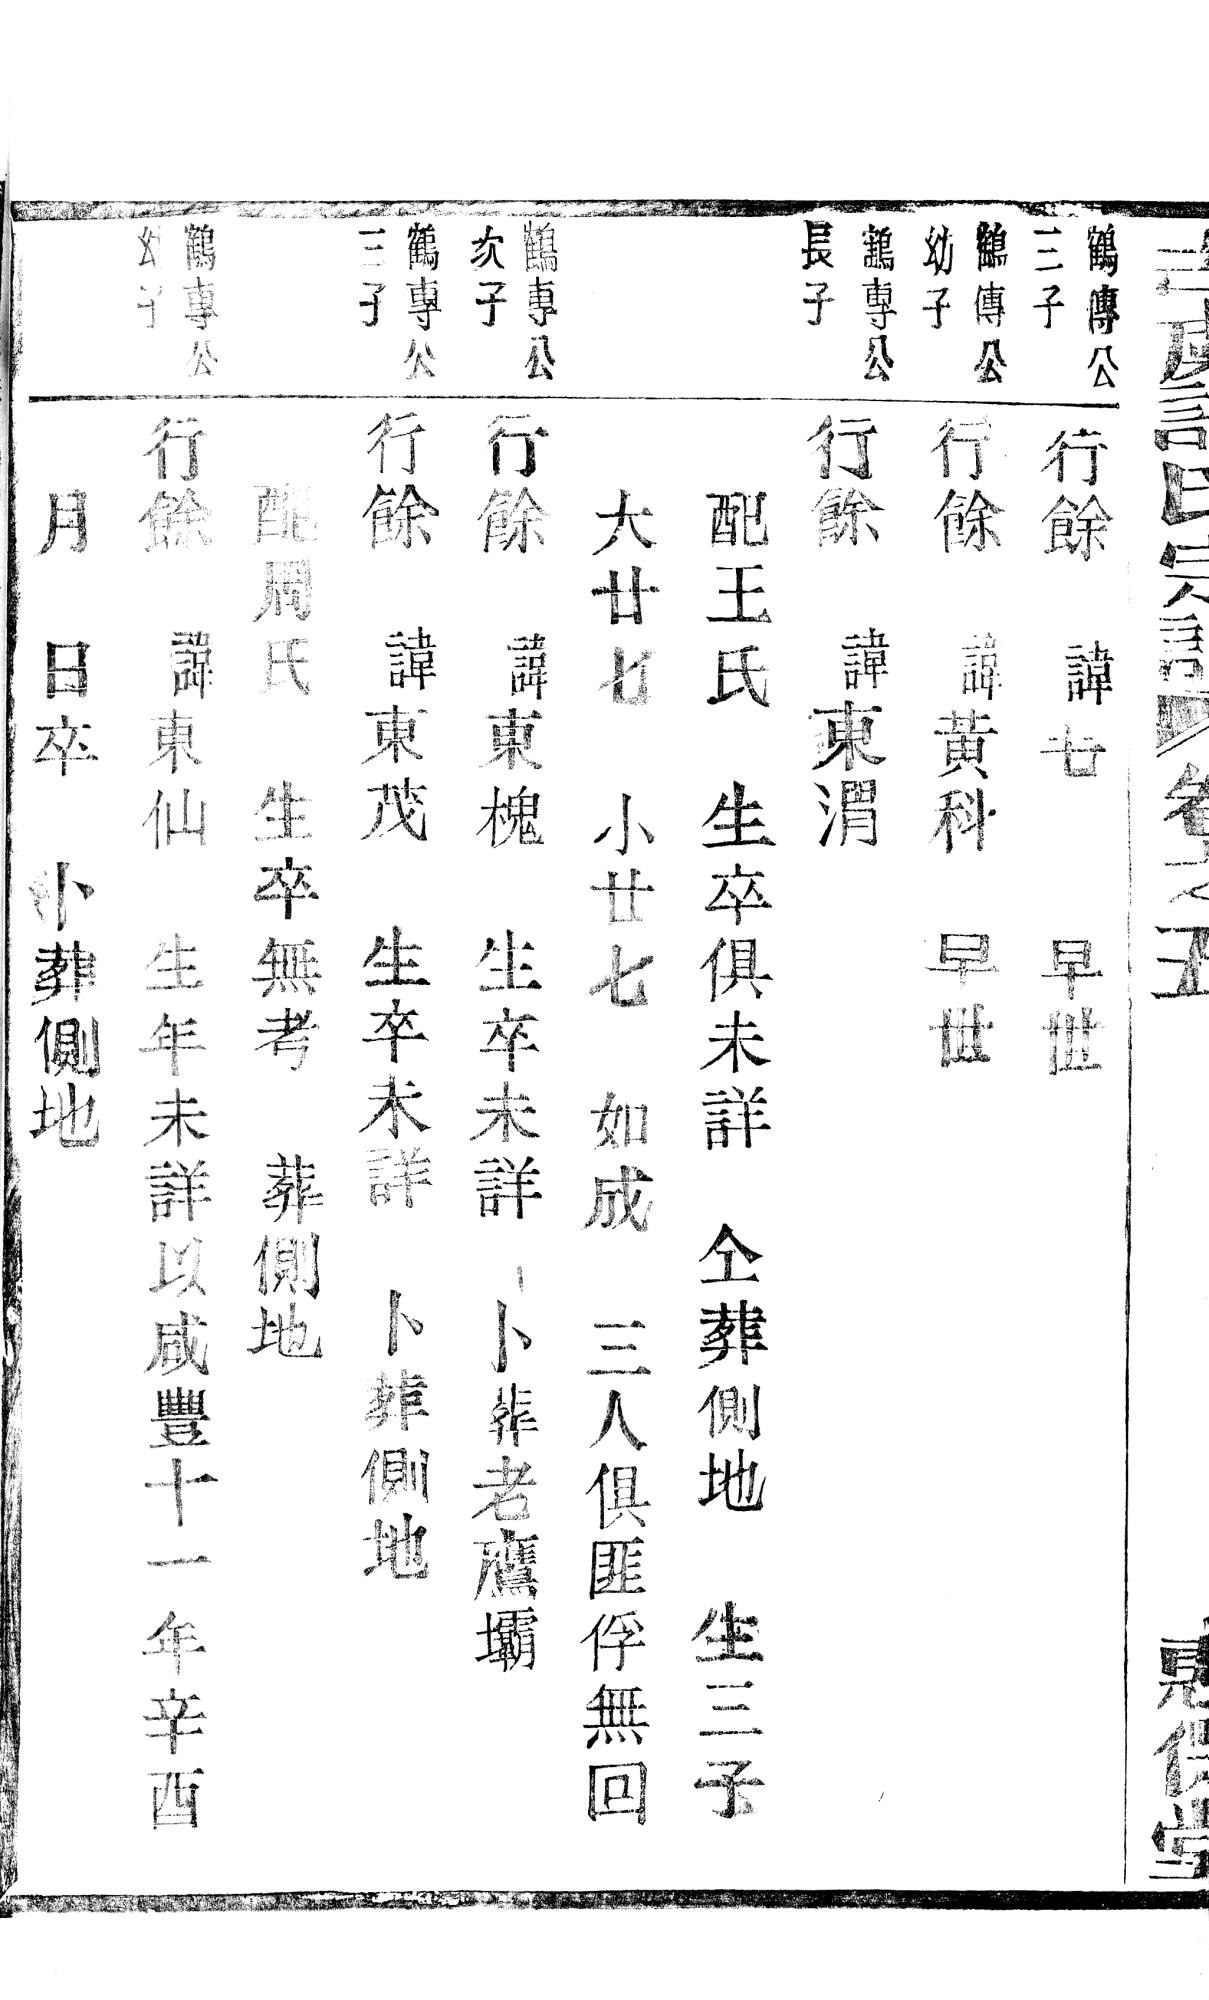 氏宗譜 卷之五
堂
鶴傳公
三子
行餘 諱七 早世
鶴傳公
幼子
行餘 諱黃科 早世
鶴專公
長子
行餘 諱東渭
配王氏 生卒俱未詳 仝葬側地 生三子
大廿七 小廿七 如成 三人俱匪俘無回
鶴專公
次子
行餘 諱東槐 生卒未詳 卜葬老鷹壩
鶴專公
三子
行餘 諱東茂 生卒未詳 卜葬側地
配周氏 生卒無考 葬側地
鶴專公
幼子
行餘 諱東仙 生年未詳以咸豐十一年辛酉
月 日卒 卜葬側地